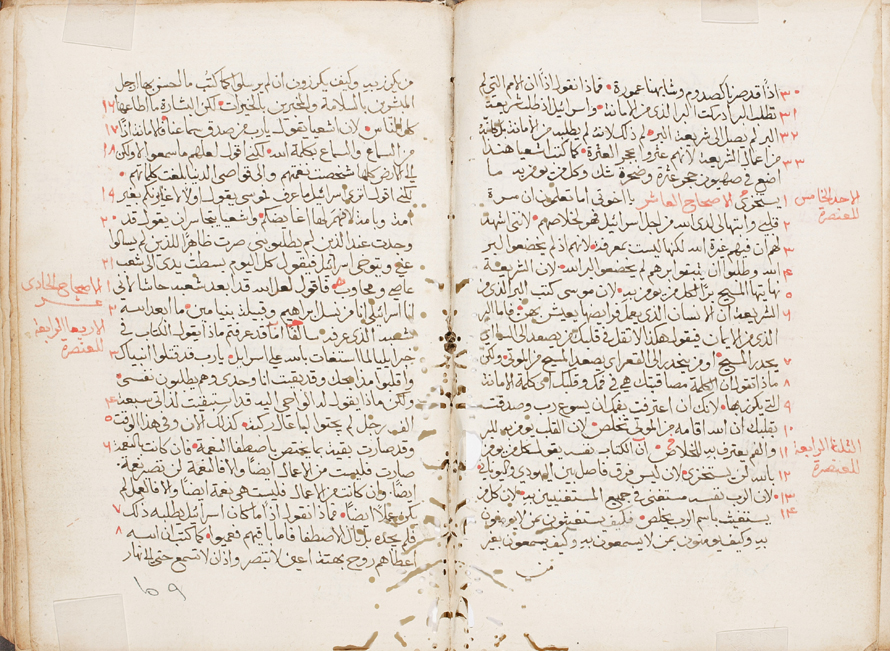 اذًا قد صرنا كصدوم وشابهنا عمورة • فماذا نقول اذًا ان الامم التي لم ٣٠
تطلب البر ادركت البر الذي من الامانة • واسراييل اذ طلب شريعة ٣١
البر لم يصل الى شريعة البر • لم ذلك لانه لم يطلبه من الامانة بل كانه ٣٢
من اعمال الشريعة لانهم عثروا بحجر العثرة • كما كتب اشعيا هنذا ٣٣
اضع في صهيون حجر عثرة وصخرة شك وكل من يومن به ما
يستخزى الاصحاح العاشر يا اخوتي اما تعلمون ان مسرة ١
الاحد الخامس
للعنصرة
قلبي وابتهالي لدى الله من اجل اسراييل لهو لخلاصهم • لانني اشهد ٢
لهم ان فيهم غيرة الله لكنها ليست بمعرفة • لانهم اذ لم يخضعوا لبر ٣
الله وطلبوا ان يثبتوا برهم لم يخضعوا لبر الله • لان الشريعة ٤
نهايتها المسيح برًا لكل من يومن به • لان موسى كتب البر الذي من ٥
الشريعة ان الانسان الذي يعمل فرايضها يعيش بهن • فاما البر ٦
الذي من الايمان فيقول هكذا لا تقل في قلبك من يصعد الى السما اي
يحدر المسيح • او من ينحدر الى القعر اي يصعد المسيح من الموتى • ولكن ٧
ماذا تقول ان الكلمة مصاقبتك هي في فمك وقلبك اي كلمة الامانة ٨
التي نكرز بها • لانك ان اعترفت بفمك ان يسوع رب وصدقت ٩
بقلبك ان الله اقامه من الموتى تخلص • لان القلب يومن به للبر ١٠
والفم يعترف به للخلاص • لان الكتاب نفسه يقول كل من يومن ١١
الثلثا الرابعة
للعنصرة
بالله لن يستخزى • لان ليس فرق فاصل بين اليهودي واليوناني ١٢
لان الرب نفسه مستغنى في جميع المستغيثين به • لان كل من ١٣
يستغيث باسم الرب يخلص • فكيف يستغيثون بمن لا يومنون ١٤
به وكيف يومنون بمن لا يسمعون به وكيف يسمعون بغير
من
من يكرز به وكيف يكرزون ان لم يرسلوا كما كتب ما احسن بها ارجل
المبشرين بالسلامة والمخبرين بالخيرات • لكن البشارة ما اطاعها ١٦
كل الناس • لان اشعيا يقول يارب من صدق سماعنا • فالامانة اذًا ١٧
من السماع والسماع بكلمة الله • لكني اقول لعلهم ما سمعوا الا ولكن ١٨
الى الارض كلها شخصت نغمتهم والى قواصي الدنيا بلغت كلماتهم •
لكني اقول اترى اسراييل ما عرف اولا موسى يقول اولا انا اغايركم بغير ١٩
امة وبامة لا فهم لها اغايضكم • واشعيا يتجاسر ان يقول قد ٢٠
وجدت عند الذين لم يطلبوني صرت ظاهرًا للذين لم يسالوا
عني • ويتوخى اسراييل فيقول كل اليوم بسطت يدي الى شعب ٢١
عاصي ومجاوب • فاقول لعل الله قد ابعد شعبه حاشا لاني ١
الاصحاح الحادى
عشر
انا اسراييلي انا من نسل ابرهيم وقبيلة بنيامين • ما ابعد الله ٢
شعبه الذي عرفه سالفًا اما قد عرفتم ماذا يقول الكتاب في
الاربعا الرابعة
للعنصرة
خبر ايليا لما استغاث بالله على اسراييل • يارب قد قتلوا انبياك ٣
وقلبوا مذابحك وقد بقيت انا وحدي وهم يطلبون نفسي •
ولكن ماذا يقول له الوحي الهي قد استبقيت لذاتي سبعة ٤
الف رجل لم يحنوا لباعال ركبة • كذلك الان وفي هذا الوقت ٥
وقد صارت بقية بما يختص باصطفا النعمة • فان كانت بالنعمة ٦
صارت فليست من الاعمال ايضًا والا فالنعمة لن تصير نعمة
ايضًا • وان كانت من الاعمال فليست هي نعمة ايضًا والا فالعمل لم
يكن عملا ايضًا • فماذا نقول اذًا ما كان اسراييل يطلبه ذلك ٧
فلم يجده بل نال الاصطفا فاما باقيهم فعموا • كما كتب ان الله ٨
اعطاهم روح بهتة اعين لا تبصر واذان لا تسمع حتى الى نهار